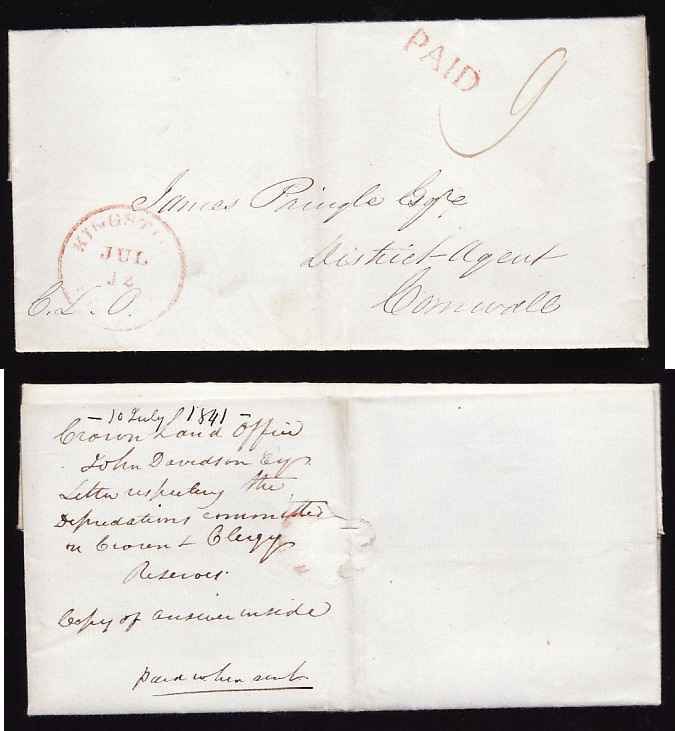 PAID
9
James Pringle Esqre
District Agent
Cornwall
KINGST
JUL
12
C. L. O.
- 10 July 1841 -
Crown Land Office
John Davidson Esqr
Letter respecting the
Depredations committed
on Crown & Clergy
Reserves.
Copy of answer inside
paid when sent